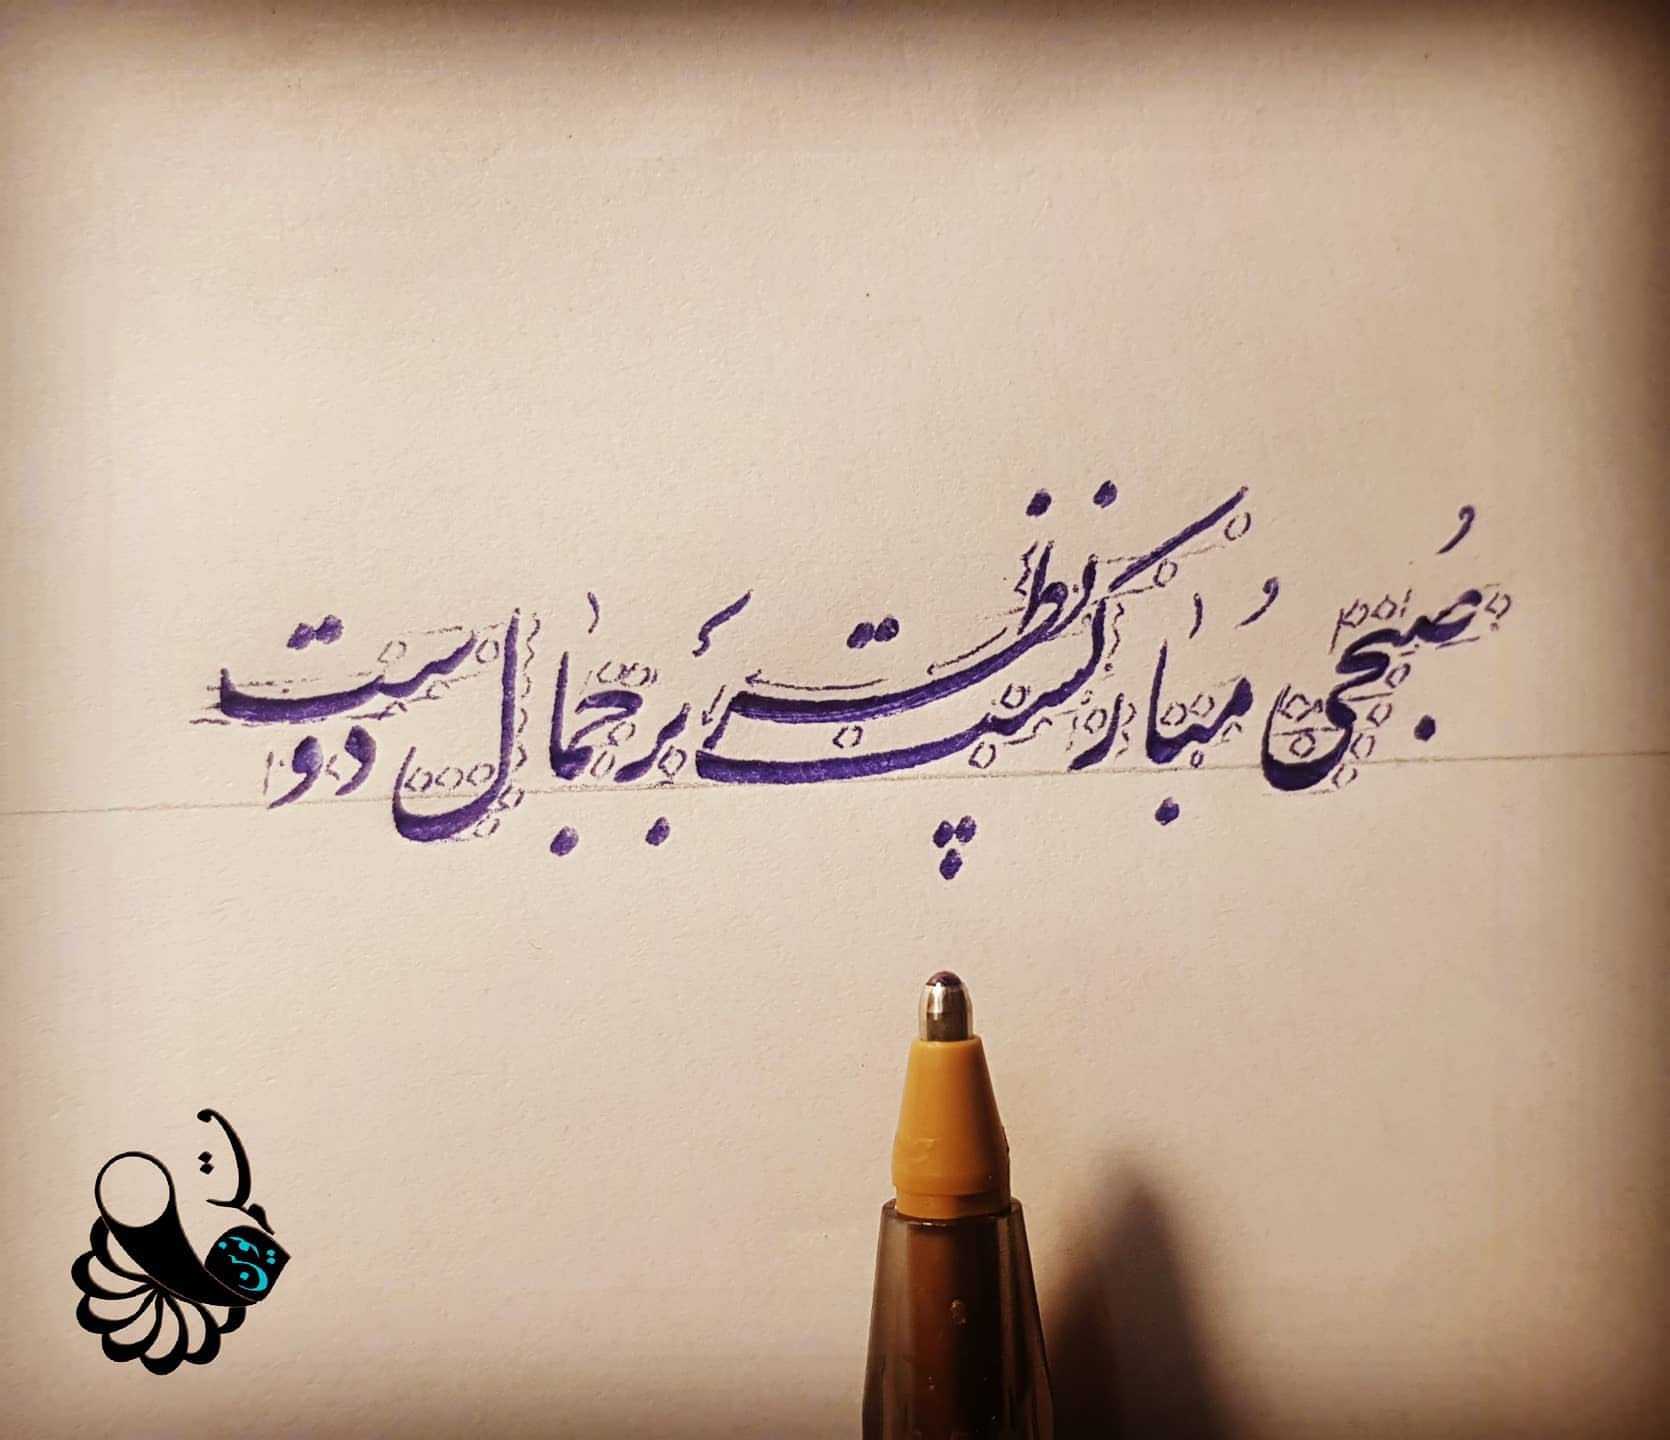 صُبحی مُبارکست نظر بر جمال دوست